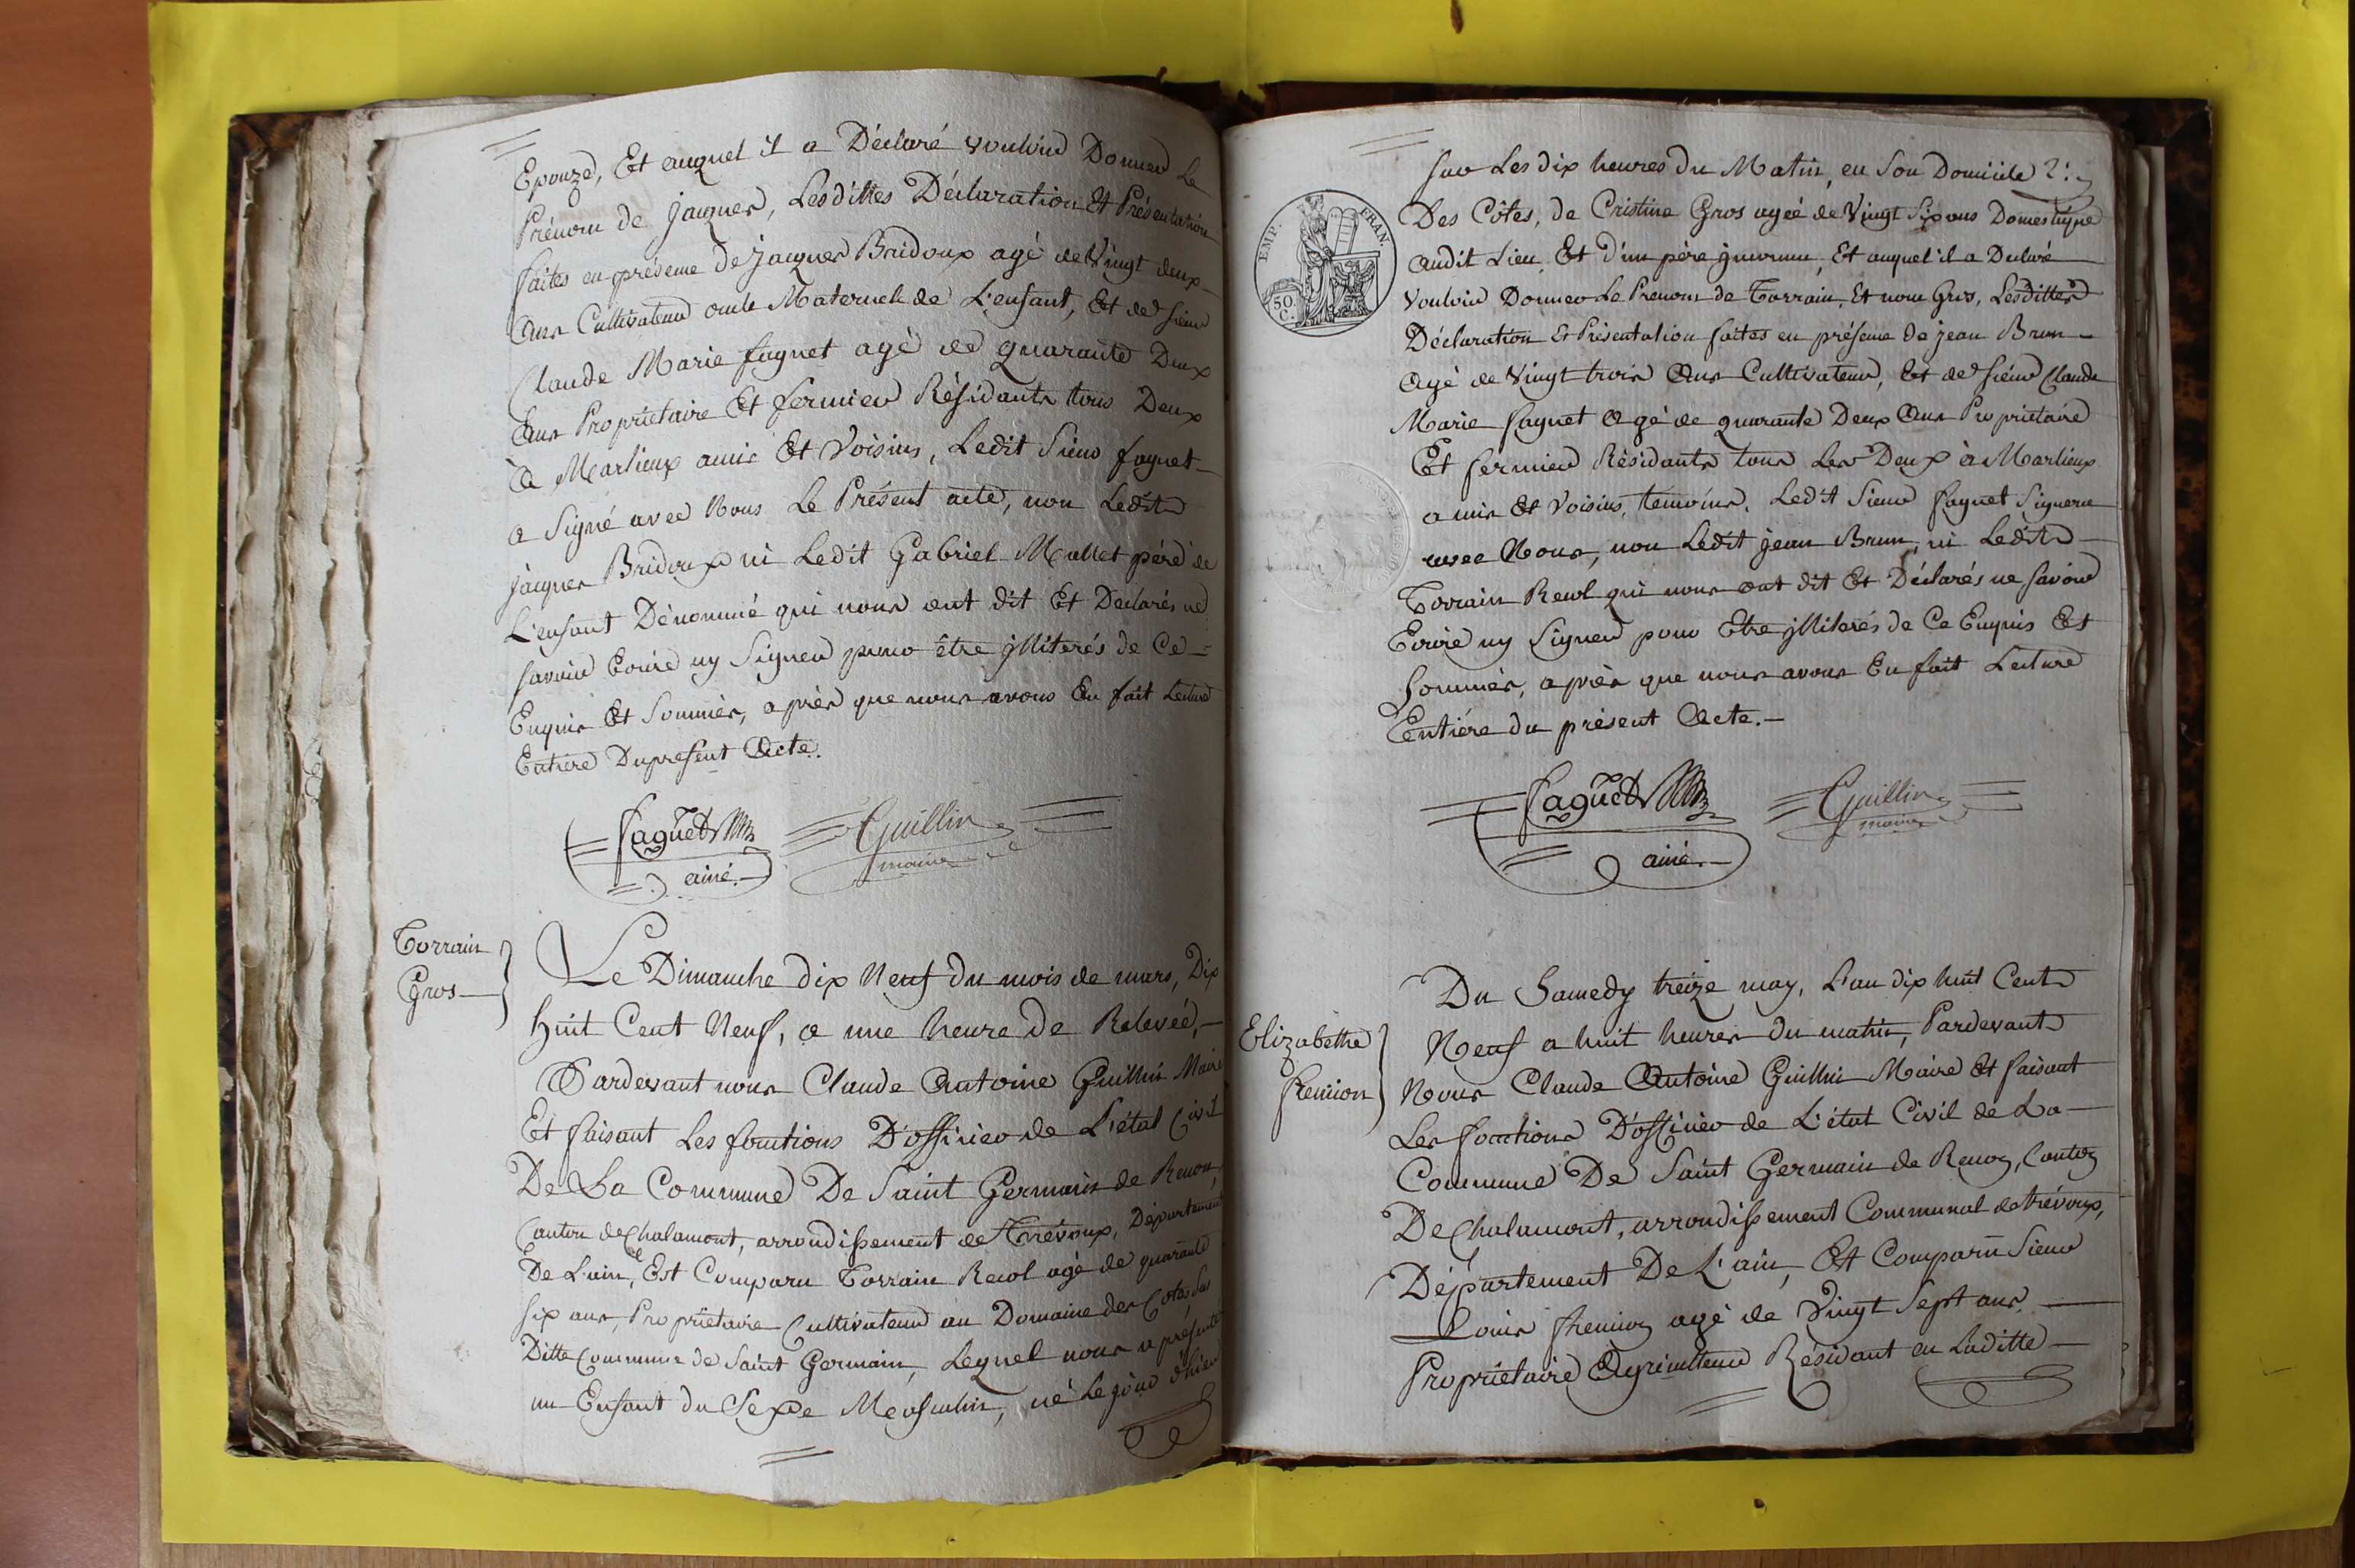 Epouze, Et auquel il a Déclaré vouloir Donner Le
Prénom de Jacques, Lesdittes Déclaration Et Présentation
faites en présence de Jacques Bridoux agé de Vingt deux
Ans Cultivateur oncle Maternel de L'enfant, Et de Sieur
Claude Marie faguet agé de quarante Deux
Ans Propriétaire Et fermier Résidants tous Deux
à Marlieux amis Et Voisins, Ledit Sieur faguet
a Signé avec Nous Le Présent acte, non Ledit
Jacques Bridoux ni Ledit Gabriel Mallet père de
L'enfant Dénommé qui nous ont dit Et Declarés ne
Savoir Ecrire ny Signer pour être jlliterés de Ce
Enquis Et Sommés, après que nous avons En fait Lecture
Entiere Du present Acte.
Faguet Guillin
ainé. maire
Torrain
Gros
Le Dimanche dix Neuf du mois de mars, Dix
huit Cent Neuf, a une heure de Relevée,
Pardevant nous Claude Antoine Guillin Maire
Et faisant Les fonctions D'officier de L'état Civil
De La Commune De Saint Germain de Renon,
Canton de Chalamont, arrondissement de Trévoux, Département
De L'ain, Est Comparu Torrain Revol agé de quarante
six ans, Propriétaire Cultivateur au Domaine des Cotes Sus
Ditte Commune de Saint Germain, Lequel nous a présenté
un Enfant du Sexe Masculin, né Le jour d'hier
EMP. FRAN.
50.
C.
sur Les dix heures du Matin, en Son Domicile
Des Côtes, de Cristine Gros agée de Vingt Six ans Domestique
audit Lieu, Et d'un père jnconnu, Et auquel il a Declaré
vouloir Donner Le Prenom de Torrain, Et nom Gros, Lesdittes
Déclaration Et Présentation faites en présence de jean Brun
Agé de Vingt trois Ans Cultivateur, Et de sieur Claude
Marie faguet Agé de quarante Deux Ans Propriétaire
Et fermier Résidants tous Les Deux à Marlieux
amis Et Voisins, témoins. Ledit Sieur faguet Signera
avec Nous, non Ledit jean Brun, ni Ledit
Torrain Revol qui nous ont dit Et Déclarés ne Savoir
Ecrire ny Signer pour Etre jlliterés de Ce Enquis Et
Sommés, après que nous avons En fait Lecture
Entière du présent Acte.
Faguet Guillin
ainé. maire
Elizabethe
frémion
Du Samedy treize may, L'an dix huit Cent
Neuf a huit heures du matin, Pardevant
Nous Claude Antoine Guillin Maire Et faisant
Les fonctions D'officier de L'état Civil de La
Commune De Saint Germain de Renon, Canton
De Chalamont, arrondissement Communal de trévoux,
Département De L'ain, Et Comparû Sieur
Louis frémion agé de Vingt Sept ans
Propriétaire Agriculteur Résidant en Laditte